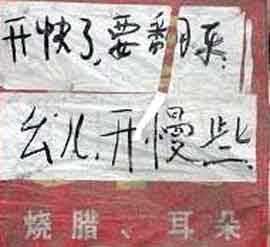 开快了，要翻司乐，
幺儿，开慢些。
烧腊、耳朵